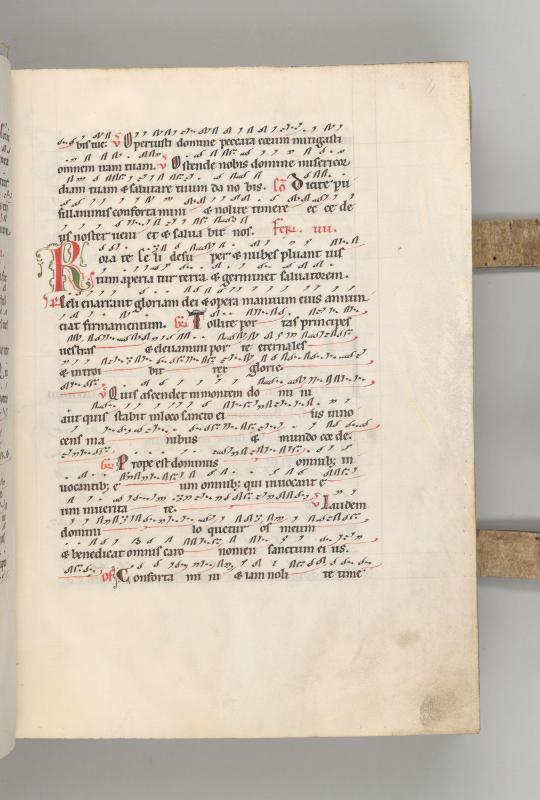 bis tue. v Operuisti domine peccata eorum mitigasti
omnem iram tuam. v Ostende nobis domine misericor
diam tuam & salutare tuum da no bis. Co Dicite pu
sillanimes confortamini & nolite timere ec ce de
us noster veni et & salva bit nos. Fer. IIII.
Rora te ce li desu per & nubes pluant ius
tum aperia tur terra & germinet salvatorem.
Celi enarrant gloriam dei & opera manuum eius annun
ciat firmamentum. Gr Tollite por tas principes
vestras & elevamini por te eternales
& introi bit rex glorie.
v Quis ascendet in montem do mi ni
aut quis stabit in loco sancto ei ius inno
cens ma nibus & mundo cor de.
Gr Prope est dominus omnib; in
vocantib; e um omnib; qui invocant e
um in verita te. v Laudem
domini lo quetur os meum
& benedicat omnis caro nomen sanctum ei us.
Of Conforta mi ni & iam noli te time